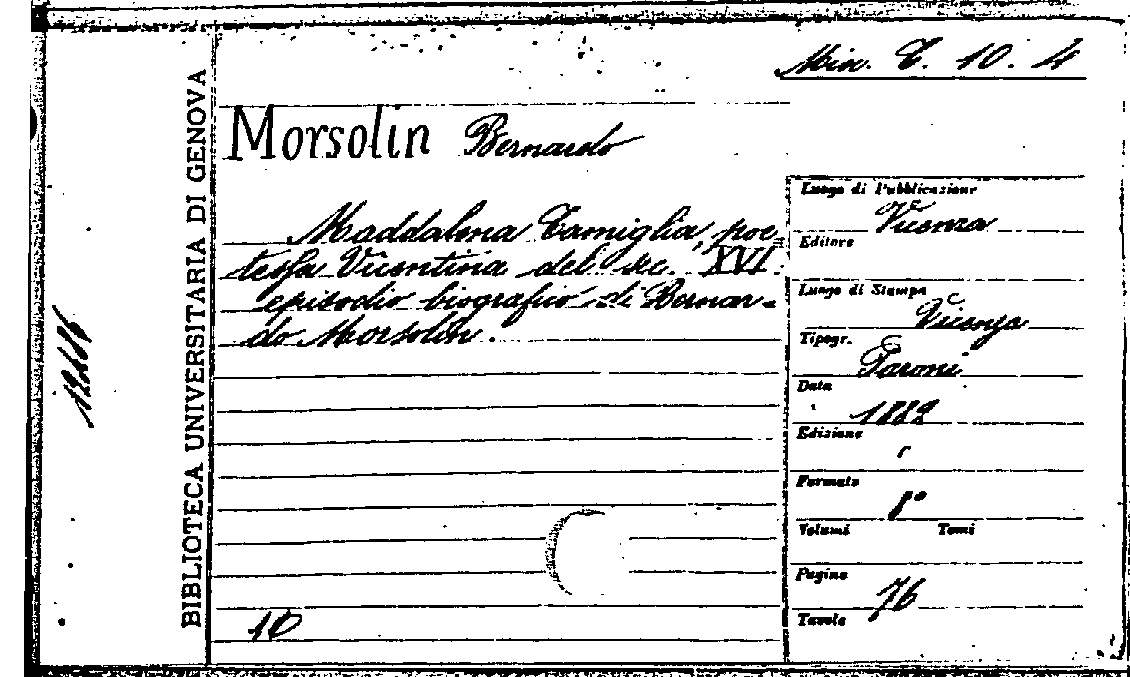 Min. C. 10. 4
Morsolin Bernardo
Maddalena Camiglia, poe-
tessa Vicentina del sec. XVI.
episodio biografico di Bernar-
do Morsolin.
10
BIBLIOTECA UNIVERSITARIA DI GENOVA
Luogo di Pubblicazione
Vicenza
Editore
Luogo di Stampa
Vicenza
Tipogr.
Paroni
Data
1882
Edizione
Formato
8°
Volumi Tomi
Pagine
76
Tavole